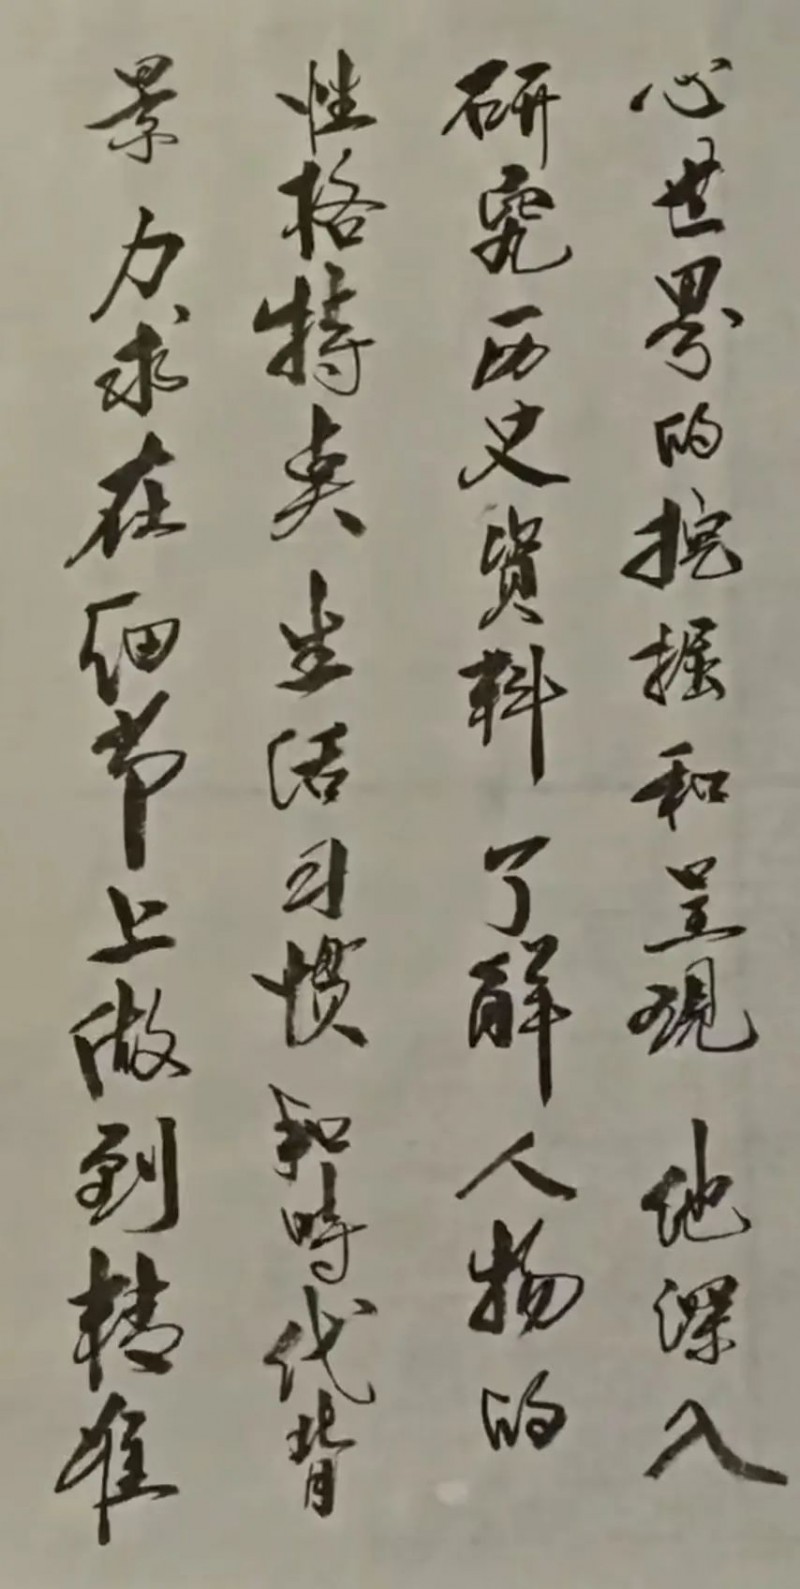 心世界的挖掘和呈现他深入
研究历史资料了解人物的
性格特点生活习惯和時代背
景力求在细节上做到精准